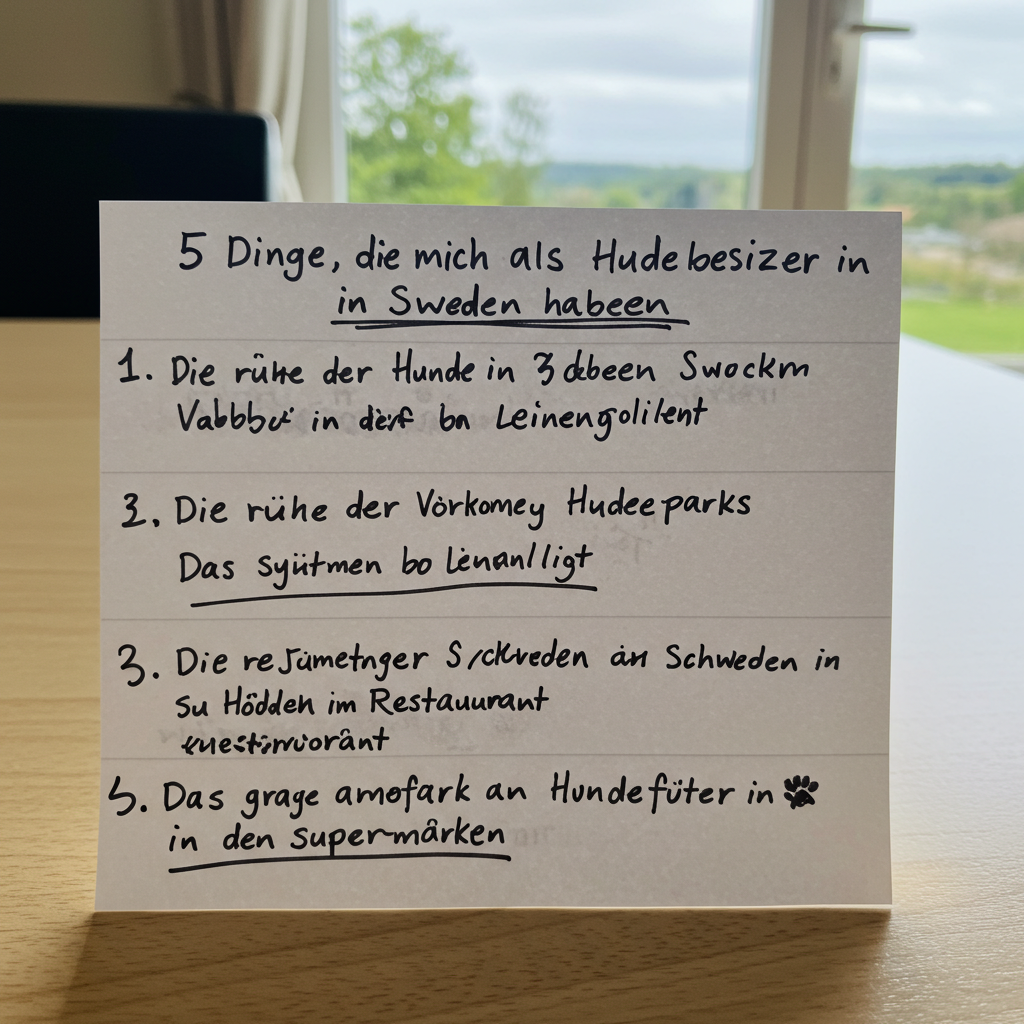 5 Dinge, die mich als Hudebesizer in
in Sweden habeen
1. Die rühe der Hunde in 3 dbeen Swockm
in Leinengolilent
3. Die rühe der Vörkomey Hudeeparks
Das syütmen bo Lenanlligt
3. Die an Schweden in
su Hödden im Restauurant
5. Das grage amofark an Hundefüter in
in den supermârken